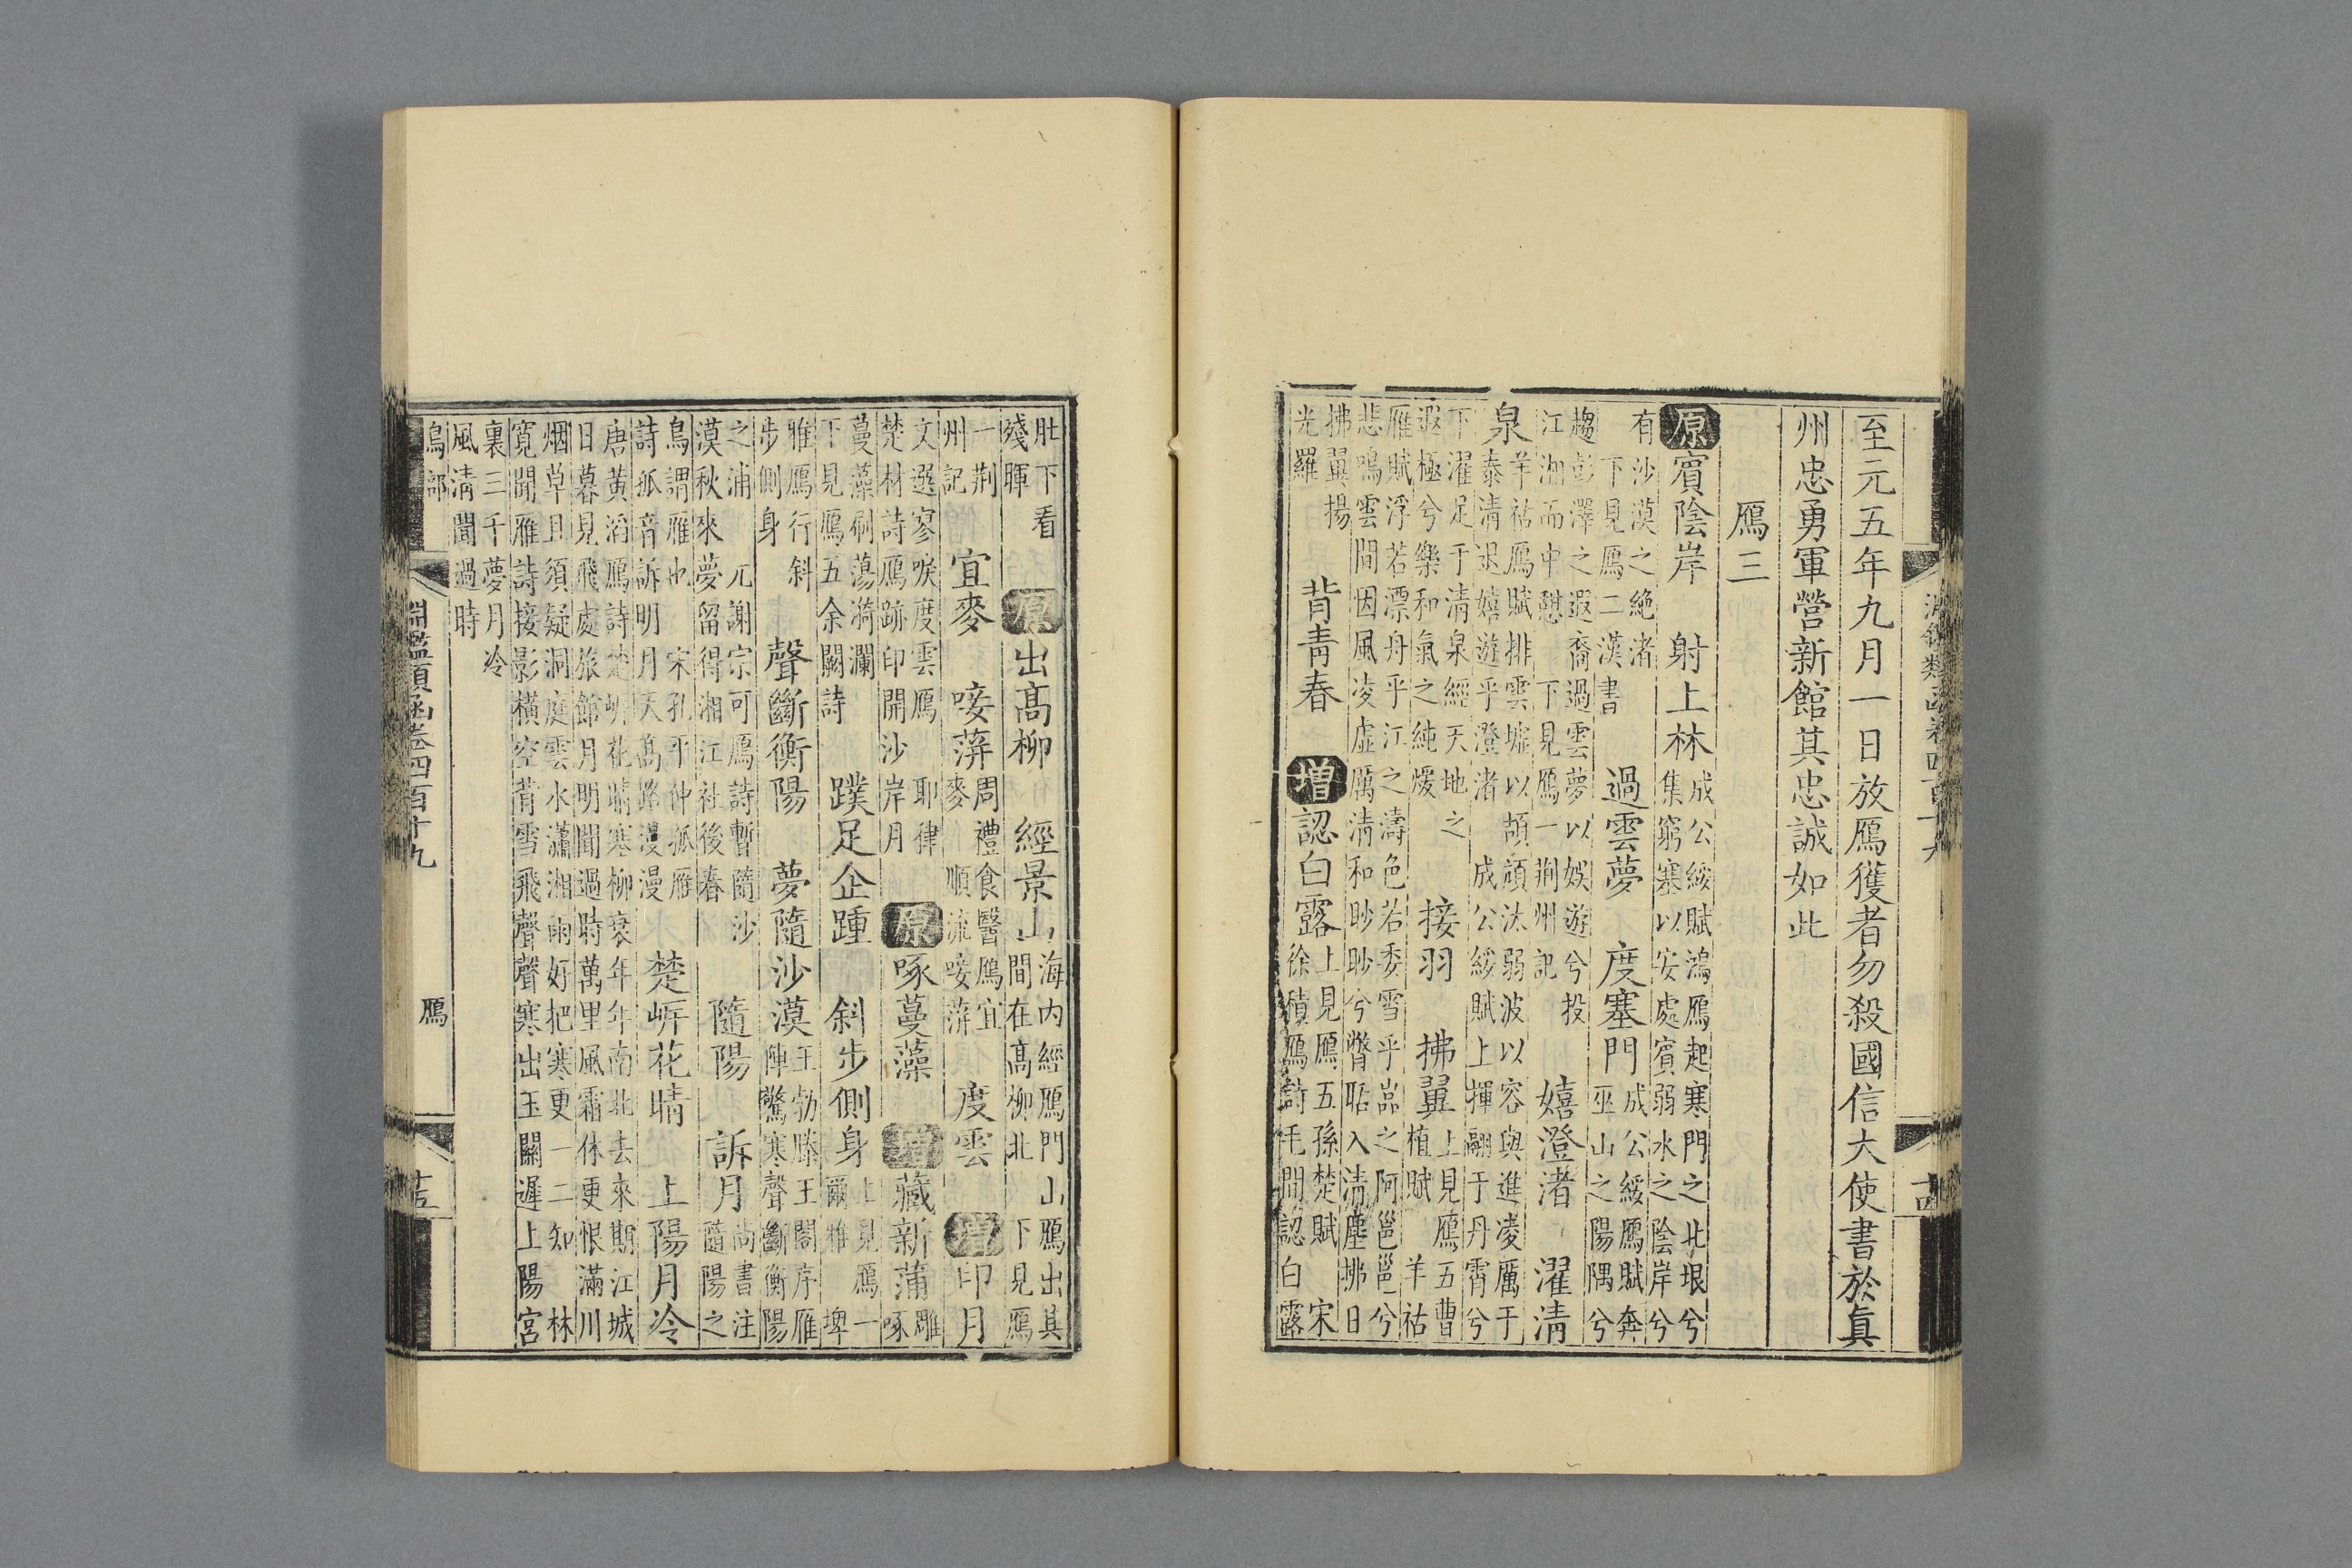 至元五年九月一日放鴈獲者勿殺國信大使書於眞
州忠勇軍營新館其忠誠如此
鴈三
原賓陰岸 射上林
成公綏賦鴻鴈起寒門之北垠兮
集窮塞以安處賓弱水之陰岸兮
有沙漠之絶渚
下見鴈二漢書
過雲夢 度塞門
成公綏鴈賦奔
巫山之陽隅兮
趨彭澤之遐裔過雲夢以娛遊兮投
江湘而中憇 下見鴈一荆州記
嬉澄渚 濯清
泉
羊祜鴈賦排雲墟以頡頏汰弱波以容與進凌厲于
泰清退嬉遊乎澄渚 成公綏賦上揮翮于丹霄兮
下濯足于清泉經天地之
遐極兮樂和氣之純煖
接羽 拂翼
上見鴈五曹
植賦 羊祜
雁賦浮若漂舟乎江之濤色若委雪乎嵓之阿邕邕兮
悲鳴雲間因風凌虛厲清和眇眇兮瞥聒入清塵拂日
拂翼揚
光羅
背靑春 增認白露
上見鴈五孫楚賦 宋
徐積鴈詩毛開認白露
肚下看
殘暉
原出髙柳 經景山
海内經鴈門山鴈出其
間在髙柳北 下見鴈
一荆
州記
宜麥 唼蓱
周禮食醫鴈宜
麥 順流唼蓱
度雲 增印月
文選寥唳度雲鴈 耶律
楚材詩鴈跡印開沙岸月
原啄蔓藻 增藏新蒲
雕
啄
蔓藻刷蕩漪瀾
下見鴈五余闕詩
蹼足企踵 斜步側身
上見鴈一
爾雅 埤
雅鴈行斜
步側身
聲斷衡陽 夢隨沙漠
王勃滕王閣序雁
陣驚寒聲斷衡陽
之浦 元謝宗可鴈詩暫隨沙
漠秋來夢留得湘江社後春
隨陽 訴月
尚書注
隨陽之
鳥謂雁也 宋孔平仲孤雁
詩孤音訴明月天髙路漫漫
楚岍花晴 上陽月冷
唐黃滔鴈詩楚岍花晴寒柳衰年年南北去來期江城
日暮見飛處旅館月明聞過時萬里風霜休更恨滿川
烟草且須疑洞庭雲水瀟湘雨好把寒更一二知 林
寛聞雁詩接影橫空背雪飛聲聲寒出玉關遲上陽宮
裏三千夢月冷
風清聞過時
鳥部 淵鑑類函卷四百十九 鴈 十五